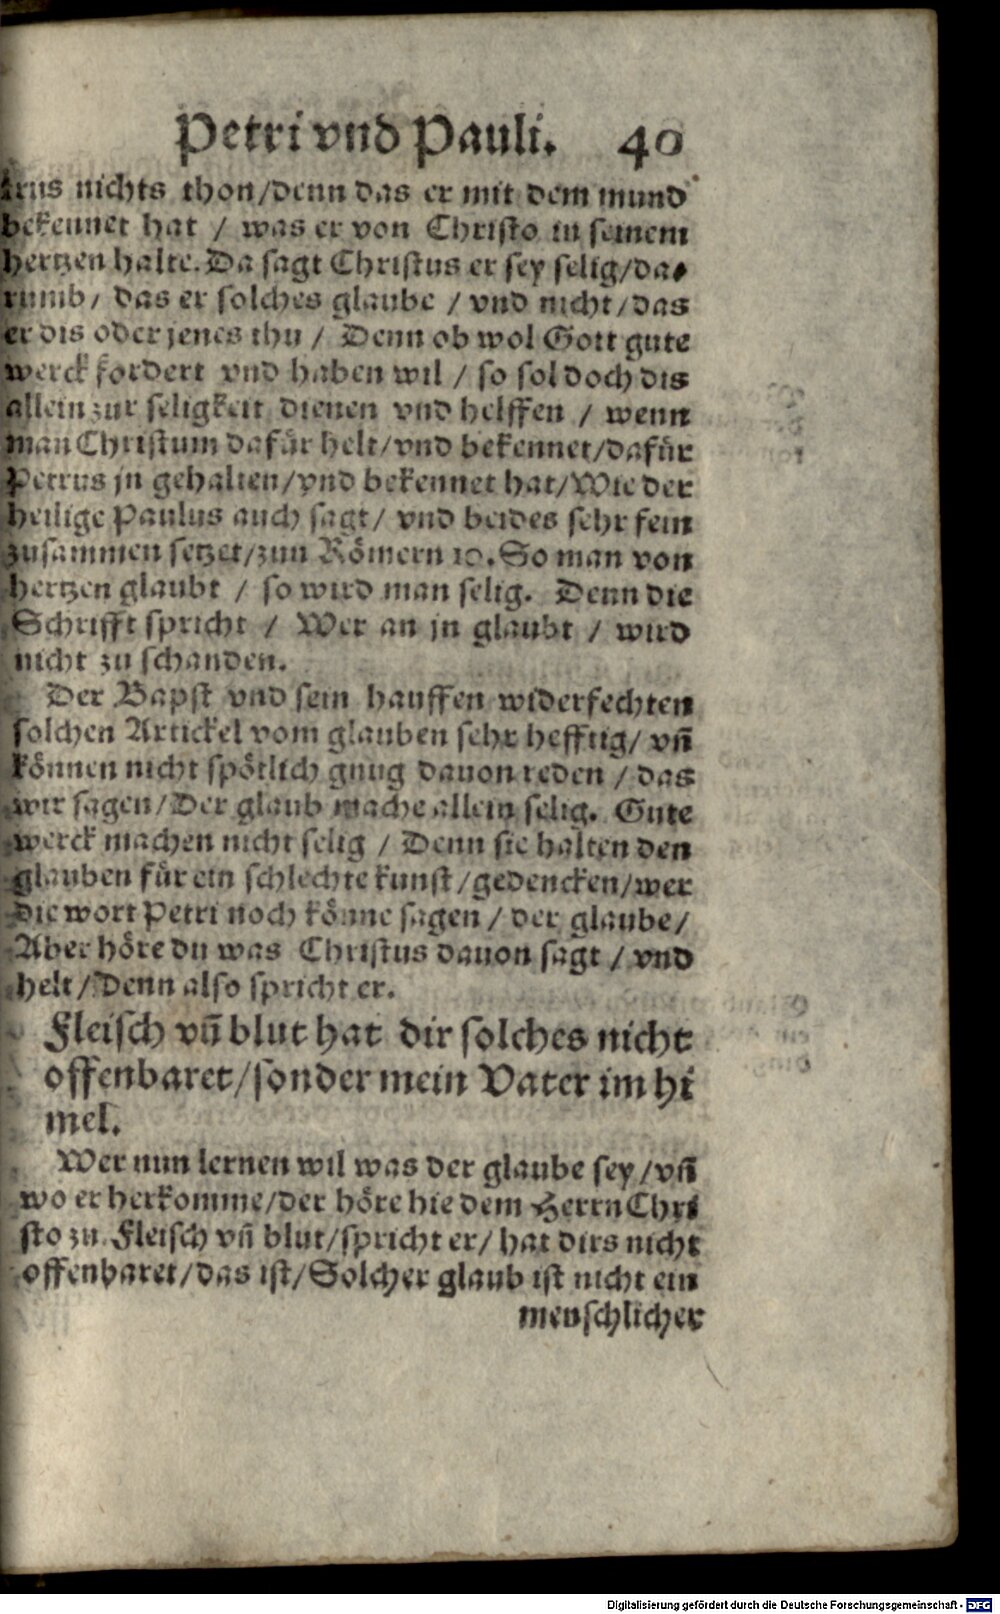 Petri vnd Pauli. 40
trus nichts thon/denn das er mit dem mund
bekennet hat / was er von Christo in seinem
hertzen halte. Da sagt Christus er sey selig/da-
rumb/ das er solches glaube / vnd nicht/das
er dis oder jenes thu / Denn ob wol Gott gute
werck fordert vnd haben wil / so sol doch dis
allein zur seligkeit dienen vnd helffen / wenn
man Christum dafür helt/vnd bekennet/dafür
Petrus jn gehalten/vnd bekennet hat/Wie der
heilige Paulus auch sagt/ vnd beides sehr fein
zusammen setzet/zun Römern 10. So man von
hertzen glaubt / so wird man selig. Denn die
Schrifft spricht / Wer an jn glaubt / wird
nicht zu schanden.
Der Bapst vnd sein hauffen widerfechten
solchen Artickel vom glauben sehr hefftig/ vñ
können nicht spötlich gnug dauon reden / das
wir sagen/Der glaub mache allein selig. Gute
werck machen nicht selig / Denn sie halten den
glauben für ein schlechte kunst/gedencken/wer
die wort Petri noch könne sagen / der glaube/
Aber höre du was Christus dauon sagt / vnd
helt/Denn also spricht er.
Fleisch vñ blut hat dir solches nicht
offenbaret/sonder mein Vater im hi
mel.
Wer nun lernen wil was der glaube sey/vñ
wo er herkomme/der höre hie dem Herrn Chri
sto zu. Fleisch vñ blut/spricht er/ hat dirs nicht
offenbaret/das ist/Solcher glaub ist nicht ein
menschlicher
Digitalisierung gefördert durch die Deutsche Forschungsgemeinschaft - DFG